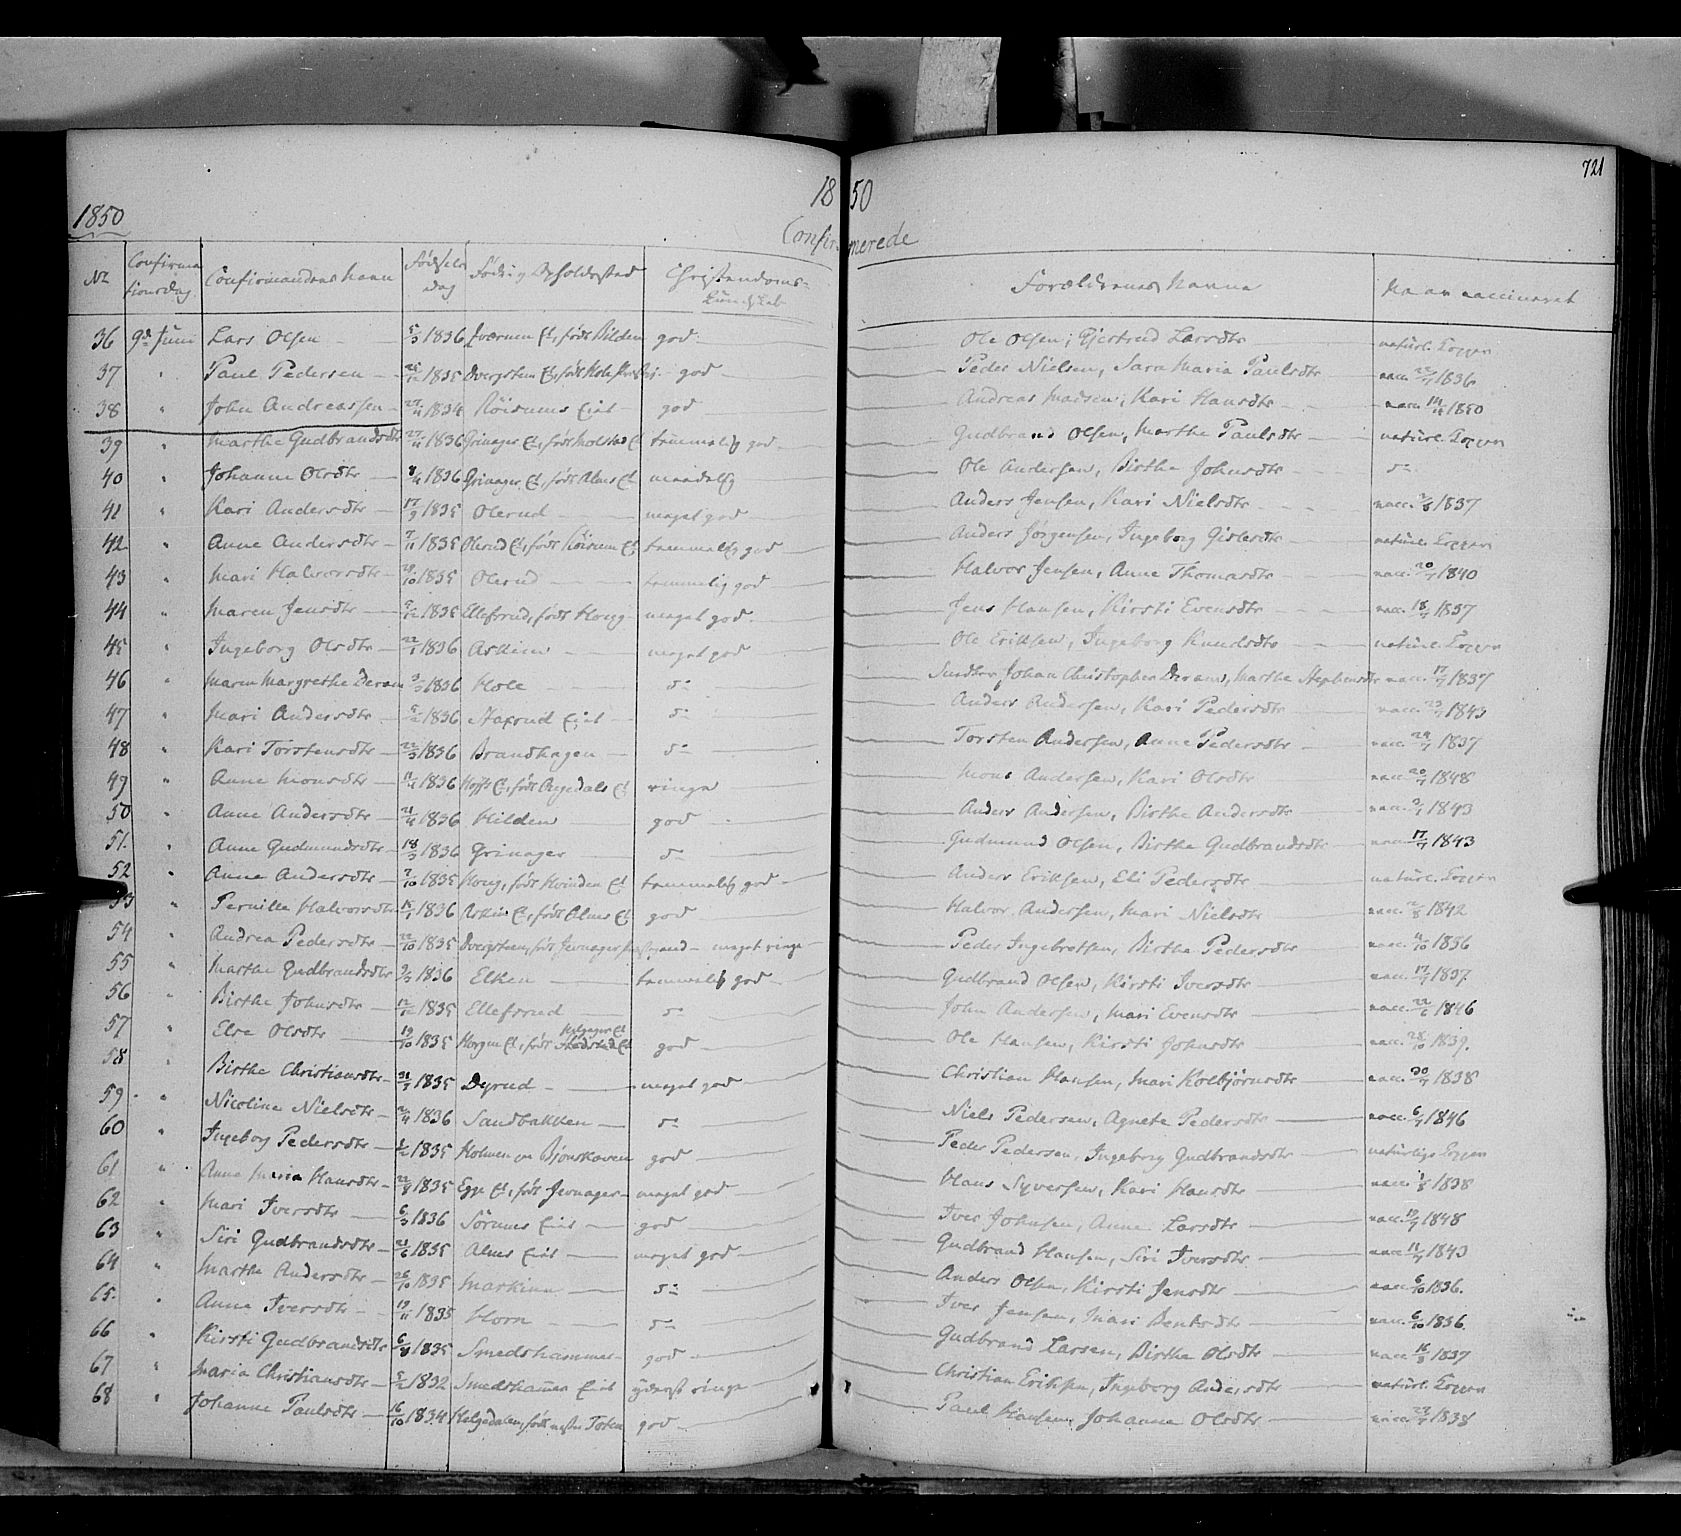 721
18 50
1850
Confirmerede
No Confirmationsdag Confirmandens Navn Fødselsdag Føde og Opholdssted Christendoms-Kundskab Forældrenes Navne Naar vaccineret
36 9de Juni Lars Olsen 5/3 1836 født Bilden god Ole Olsen, Gjertrud Larsdtr naturl. Kopper
37 " Paul Pedersen 1835 Dvergsten Et, født god Peder Nielsen, Sara Maria Paulsdtr vacc. 1836
38 " John Andreassen 1834 Röisums Eiet god Andreas Madsen, Kari Hansdtr vacc. 1850
39 " Marthe Gudbrandsdtr 1836 Grinager Et, født Holstad Et temmelig god Gudbrand Olsen, Marthe Paulsdtr naturl. Kopper
40 " Johanne Olsdtr 1836 Grinager Et, født Alms Et maadelig Ole Andersen, Birthe Johnsdtr do
41 " Kari Andersdtr 17/9 1835 Olerud meget god Anders Jensen, Kari Nielsdtr vacc. 1837
42 " Anne Andersdtr 7/11 1835 Olerud Et, født Röisum Et temmelig god Anders Jörgensen, Ingeborg Gislesdtr naturl. Kopper
43 " Mari Halvorsdtr 1835 Olerud temmelig god Halvor Jensen, Anne Thomasdtr vacc. 20/7 1840
44 " Maren Jensdtr 1835 Ellefsrud, født Houg meget god Jens Hansen, Kirsti Evensdtr vacc. 18/7 1837
45 " Ingeborg Olsdtr 22/1 1836 Askim meget god Ole Eriksen, Ingeborg Knudsdtr naturl. Kopper
46 " Maren Margrethe Deram 1836 Hole do Johan Christopher Deram, Marthe Stephensdtr vacc. 17/7 1837
47 " Mari Andersdtr 1836 Eiet do Anders Andersen, Kari Pedersdtr vacc. 1843
48 " Kari Torstensdtr 22/3 1836 Brandhagen do Torsten Andersen, Anne Pedersdtr vacc. 1837
49 " Anne Monsdtr 11/4 1836 Hoffs Et, født Et ringe Mons Andersen, Kari Olsdtr vacc. 20/7 1848
50 " Anne Andersdtr 21/4 1836 Hilden god Anders Andersen, Birthe Andersdtr vacc. 1843
51. " Anne Gudmundsdtr 18/3 1836 Grinager do Gudmund Olsen, Birthe Gudbrandsdtr vacc. 17/7 1843
52 " Anne Andersdtr 7/10 1835 Houg, født Hvinden Et temmelig god Anders Eriksen, Eli Pedersdtr naturl. Kopper
53 " Pernille Halvorsdtr 1836 Askim Et, født Alms Et god Halvor Andersen, Mari Nielsdtr vacc. 1842
54 " Andrea Pedersdtr 22/10 1835 Dvergsten, født Jevnager meget ringe Peder Ingebretsen, Birthe Pedersdtr vacc. 1836
55 " Marthe Gudbrandsdtr 1836 Elken temmelig god Gudbrand Olsen, Kirsti Iversdtr vacc. 17/7 1837
56 " Birthe Johnsdtr 12/12 1835 Ellefsrud do John Andersen, Mari Evensdtr vacc. 22/6 1846
57 " Else Olsdtr 19/10 1835 Horgen Et, født Et god Ole Hansen, Kirsti Johnsdtr vacc. 28/10 1839.
58 " Birthe Christiansdtr 1835 Dyrud meget god Christian Hansen, Mari Kolbjörnsdtr vacc. 1838
59 " Nicoline Nielsdtr 2/4 1836 Sandbakken do Niels Pedersen, Agnete Pedersdtr vacc. 6/7 1846
60 " Ingeborg Pedersdtr 1835 Holmen god Peder Pedersen, Ingeborg Gudbrandsdtr naturlige Kopper
61 " Anne Maria Hansdtr 22/8 1835 Egge Et, født Jevnager meget god Hans Syversen, Kari Hansdtr vacc. 1838
62 " Mari Iversdtr 6/3 1836 Sörums Eiet god Iver Johnsen, Anne Larsdtr vacc. 19/7 1848
63 " Siri Gudbrandsdtr 21/6 1835 Alms Eiet meget god Gudbrand Hansen, Siri Iversdtr vacc. 11/7 1843
64 " Marthe Andersdtr 26/10 1835 Markinn do Anders Olsen, Kirsti Jensdtr vacc. 6/10 1836.
65. " Anne Iversdtr 19/11 1835 Horn do Iver Jensen, Mari Bentsdtr vacc. 6/10 1836.
66 " Kirsti Gudbrandsdtr 6/8 1835 Smedshammer god Gudbrand Larsen, Birthe Olsdtr vacc. 16/8 1837
67 " Maria Christiansdtr 1832 Smedshammer Eiet yderst ringe Christian Eriksen, Ingeborg Andersdtr naturl. Kopper
68 " Johanne Paulsdtr 16/10 1834 Helgedalen, født Toten god Paul Hansen, Johanne Olsdtr vacc. 1838